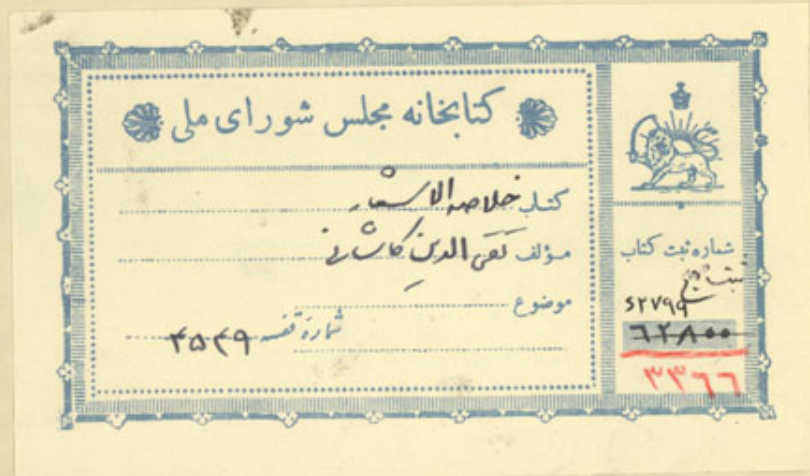 کتابخانه مجلس شورای ملی
کتاب خلاصه الاشعار
مؤلف تقی الدین کاشانی
موضوع
شماره قفسه ۴۵۴۹
شماره ثبت کتاب
ثبت
۶۲۷۹۹
۶۲۸۰۰
۳۳۶۶